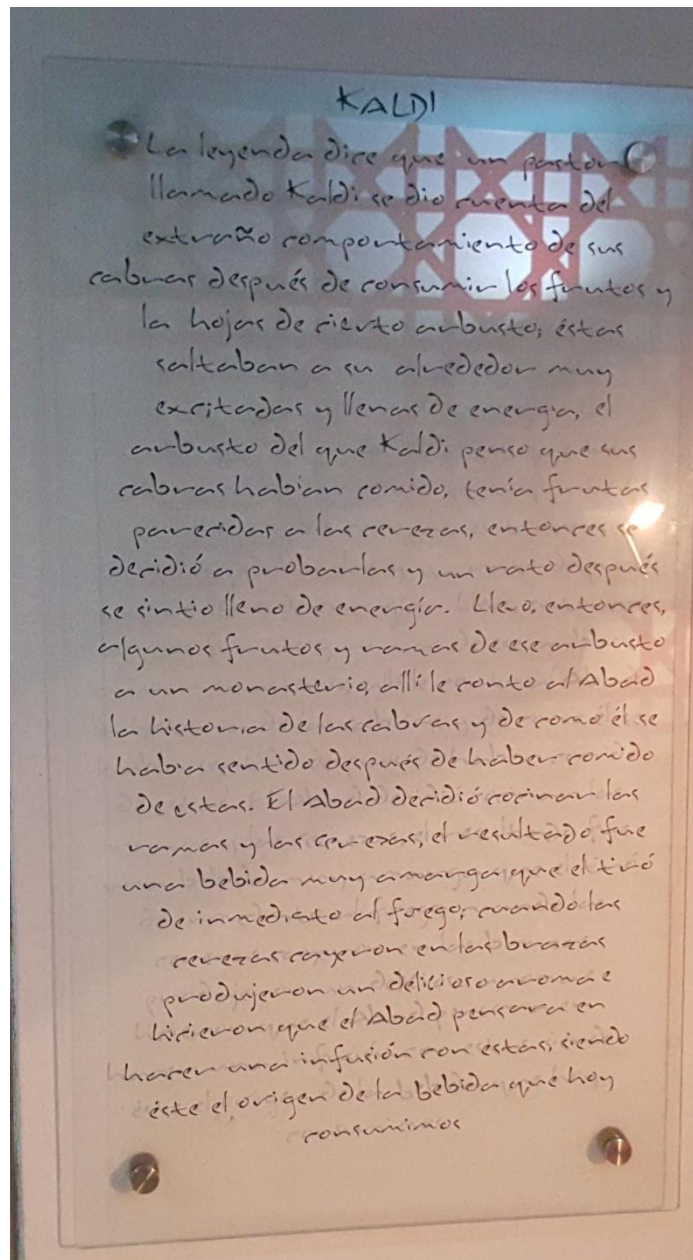 KALDI
La leyenda dice que un pastor
llamado Kaldi se dio cuenta del
extraño comportamiento de sus
cabras después de consumir los frutos y
la hojas de cierto arbusto; éstas
saltaban a su alrededor muy
excitadas y llenas de energia, el
arbusto del que Kaldi penso que sus
cabras habían comido, tenía frutas
parecidas a las cerezas, entonces se
decidió a probarlas y un rato después
se sintio lleno de energía. Llevo, entonces,
algunos frutos y ramas de ese arbusto
a un monasterio, allí le conto al Abad
la historia de las cabras y de como él se
habia sentido después de haber comido
de estas. El Abad decidió cocinar las
ramas y las cerezas, el resultado fue
una bebida muy amarga que el tiró
de inmediato al fuego, cuando las
cerezas cayeron en las brazas
produjeron un delicioso aroma e
hicieron que el Abad pensara en
hacer una infusión con estas, siendo
éste el origen de la bebida que hoy
consumimos